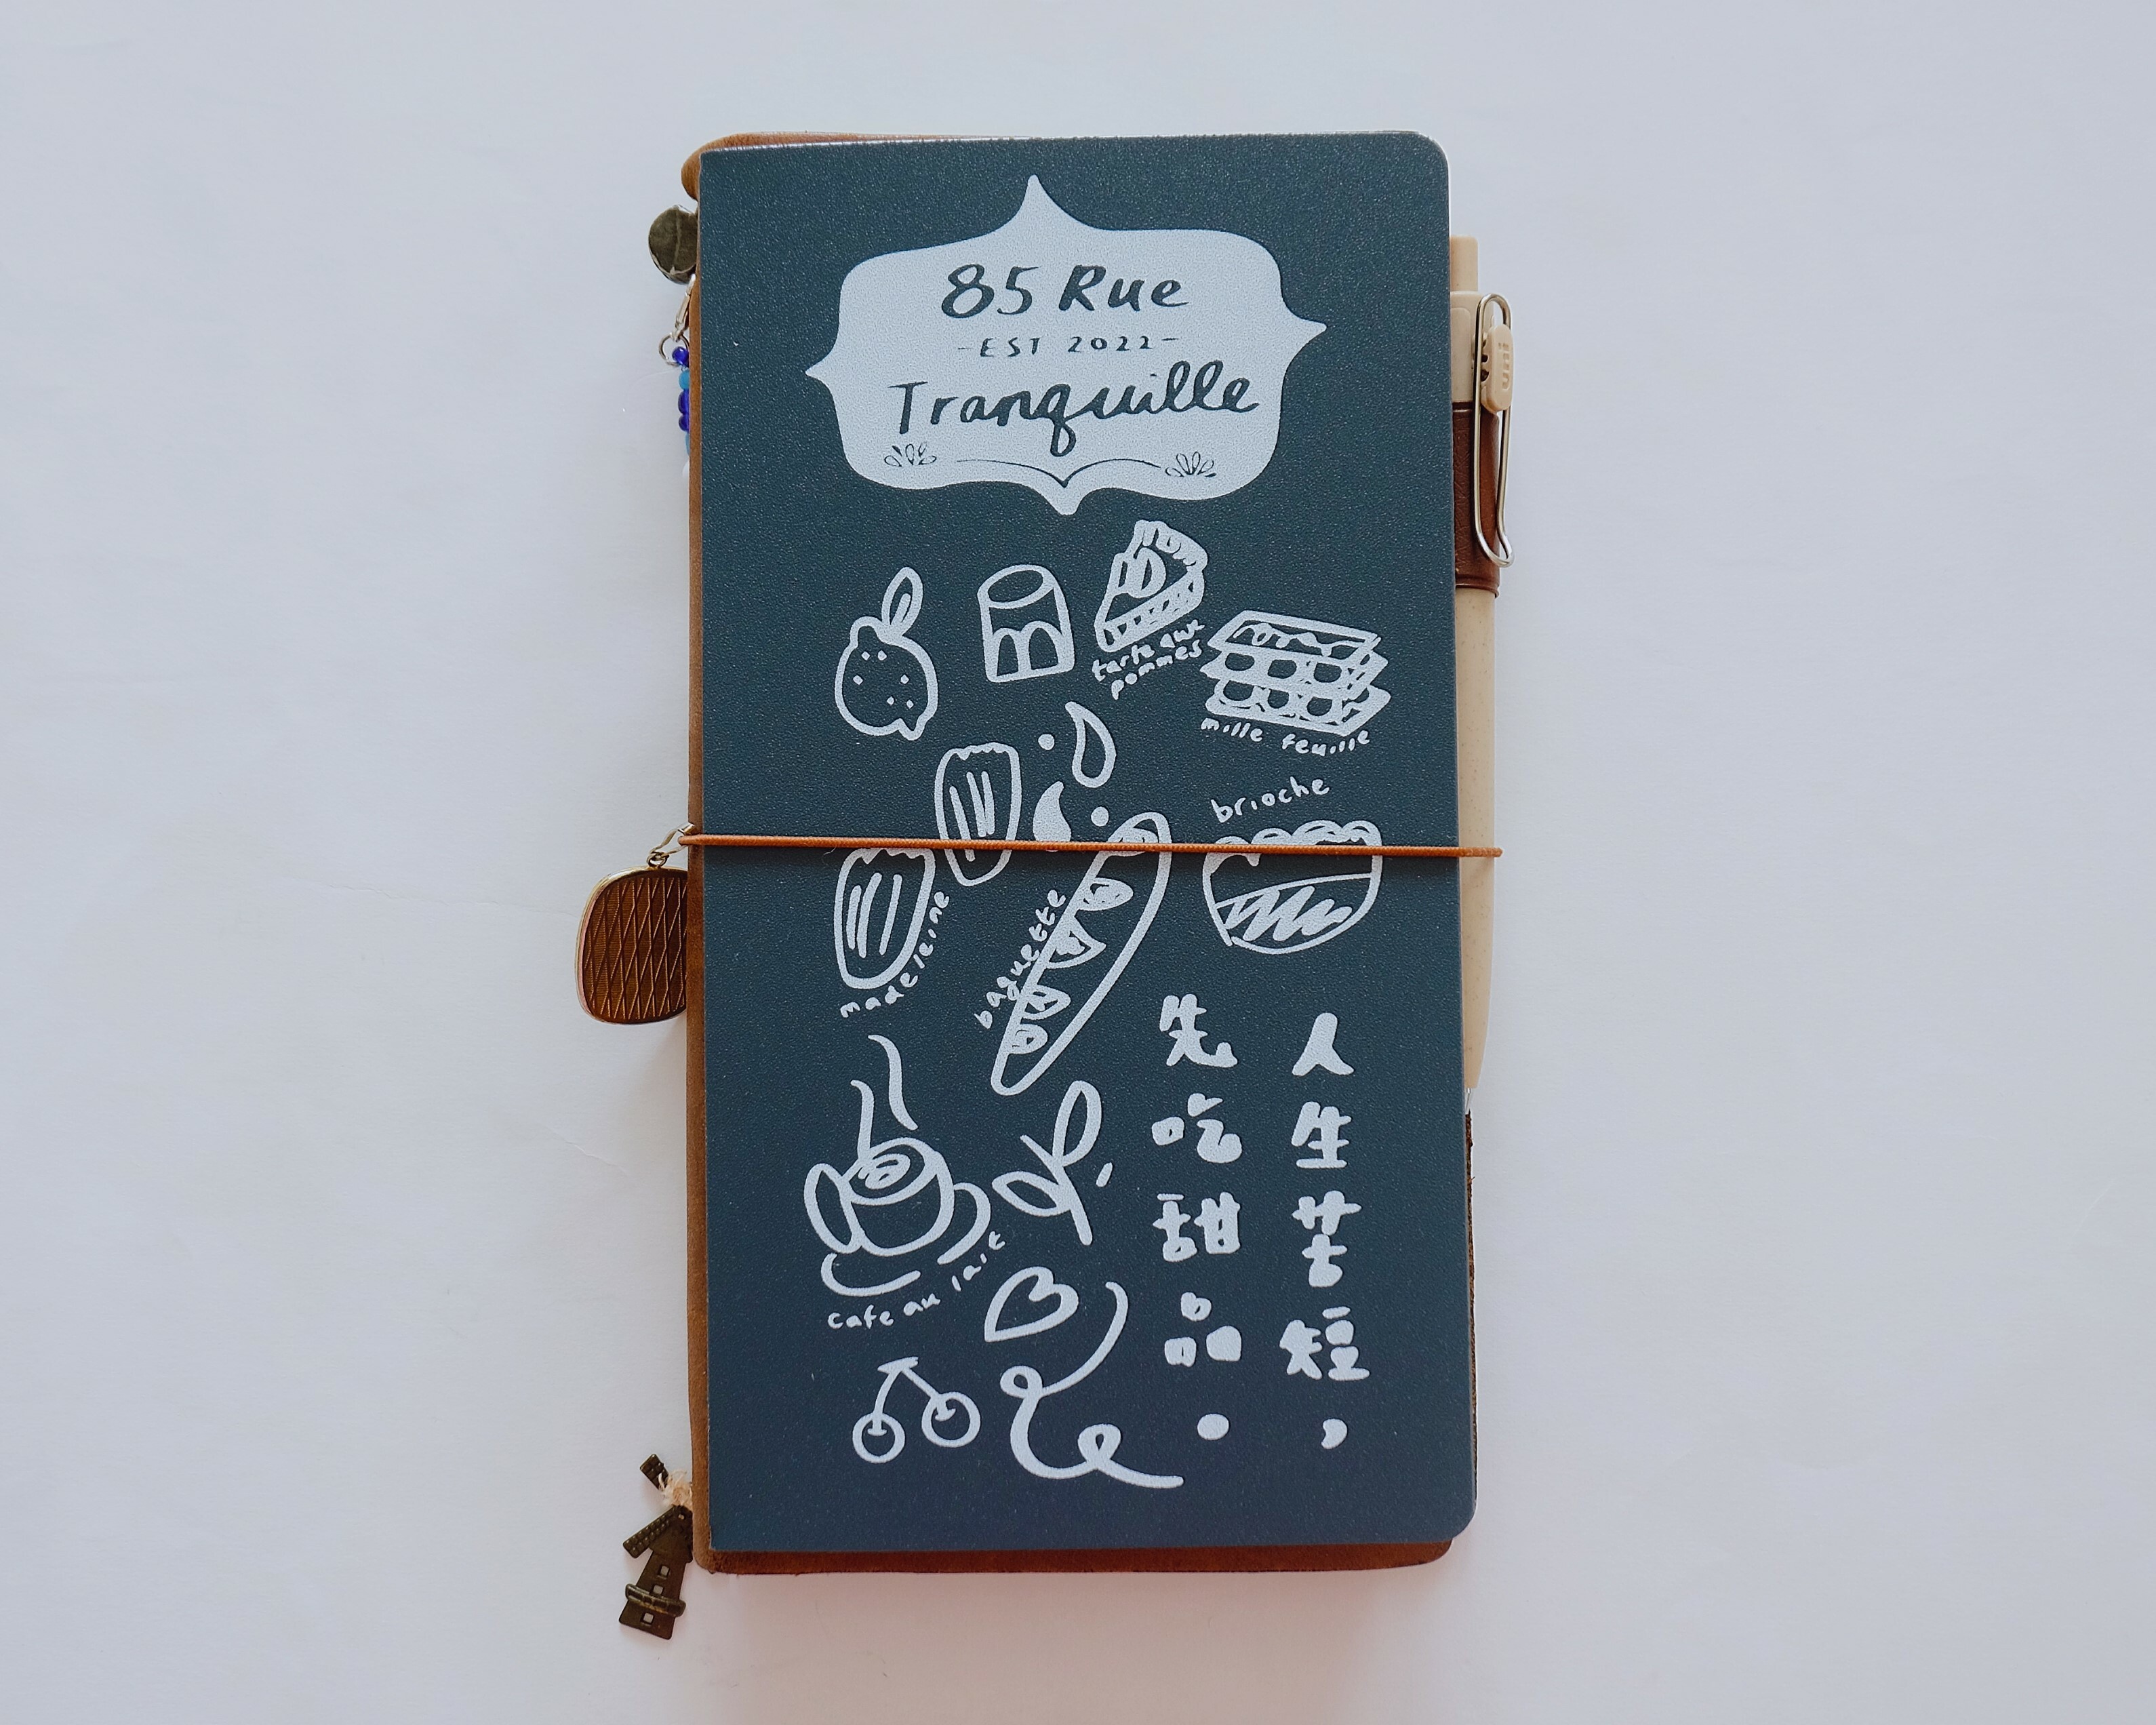 85 Rue
-EST 2022-
Tranquille
tarte aux
pommes
mille feuille
brioche
madeleine
baguette
cafe au lait
人生苦短，
先吃甜品。
uni